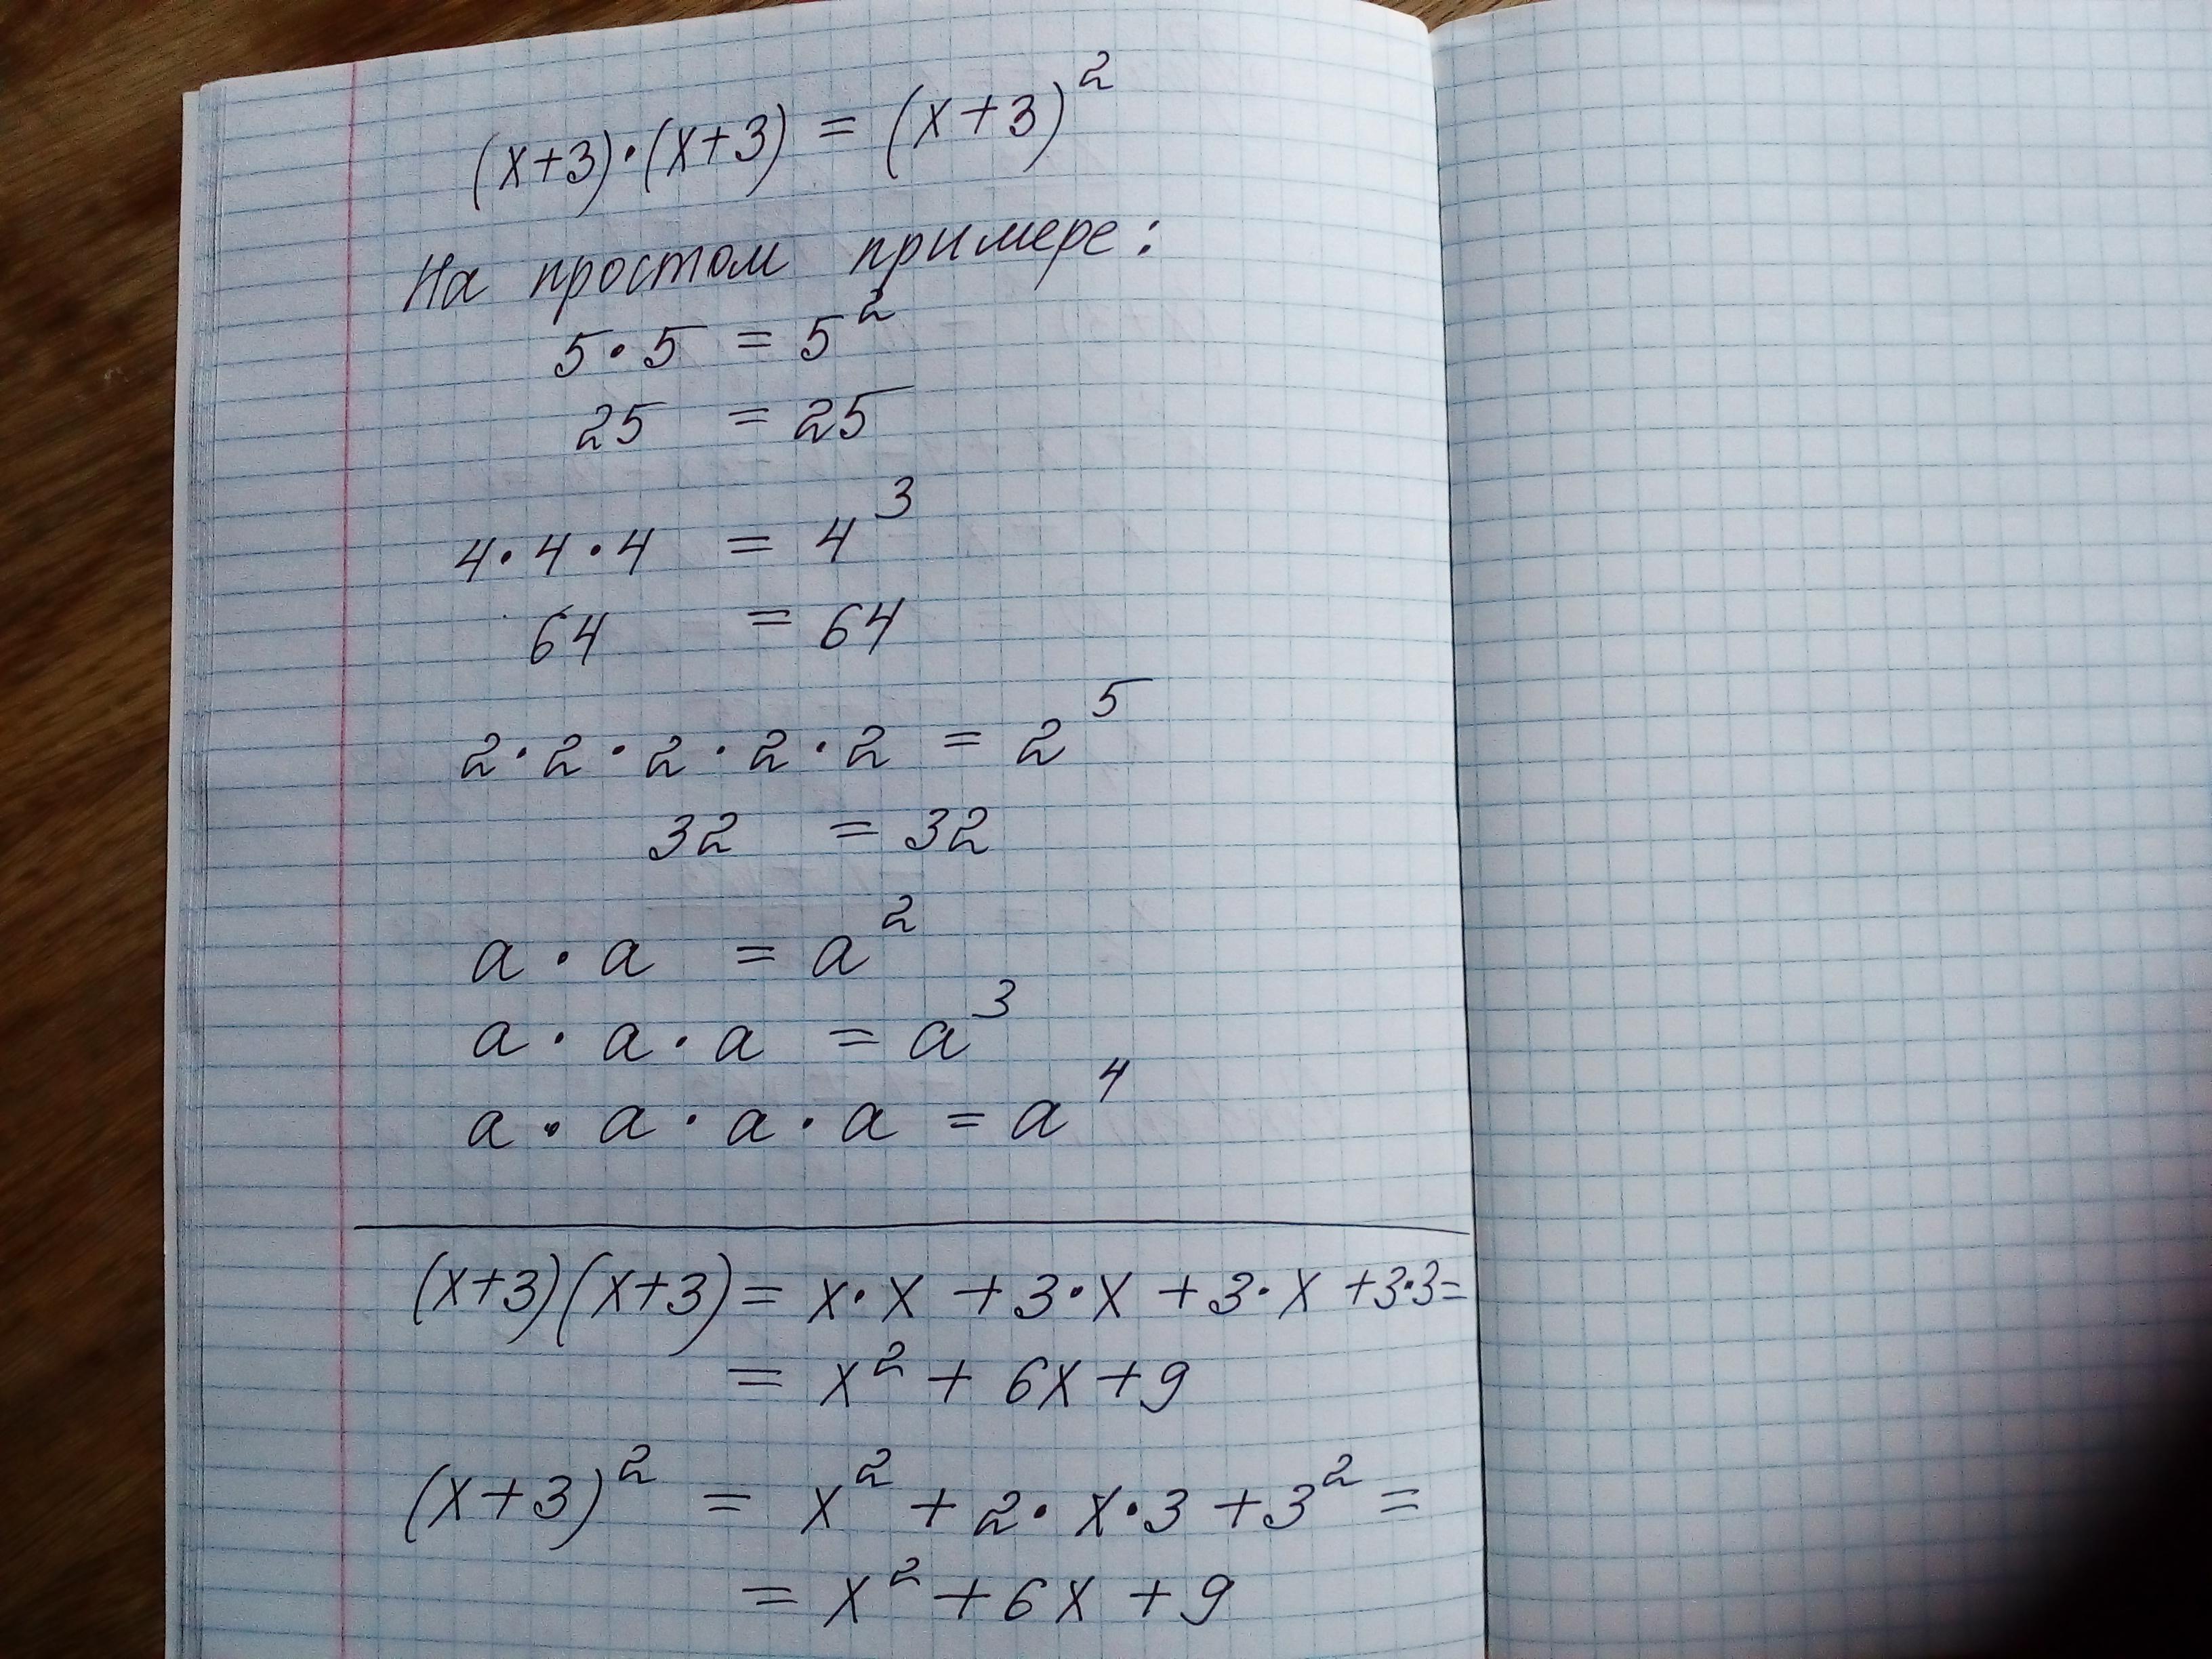 (x+3)·(x+3) = (x+3)²
На простом примере:
5·5 = 5²
25 = 25
4·4·4 = 4³
64 = 64
2·2·2·2·2 = 2⁵
32 = 32
a·a = a²
a·a·a = a³
a·a·a·a = a⁴
(x+3)(x+3) = x·x + 3·x + 3·x + 3·3 =
= x² + 6x + 9
(x+3)² = x² + 2·x·3 + 3² =
= x² + 6x + 9